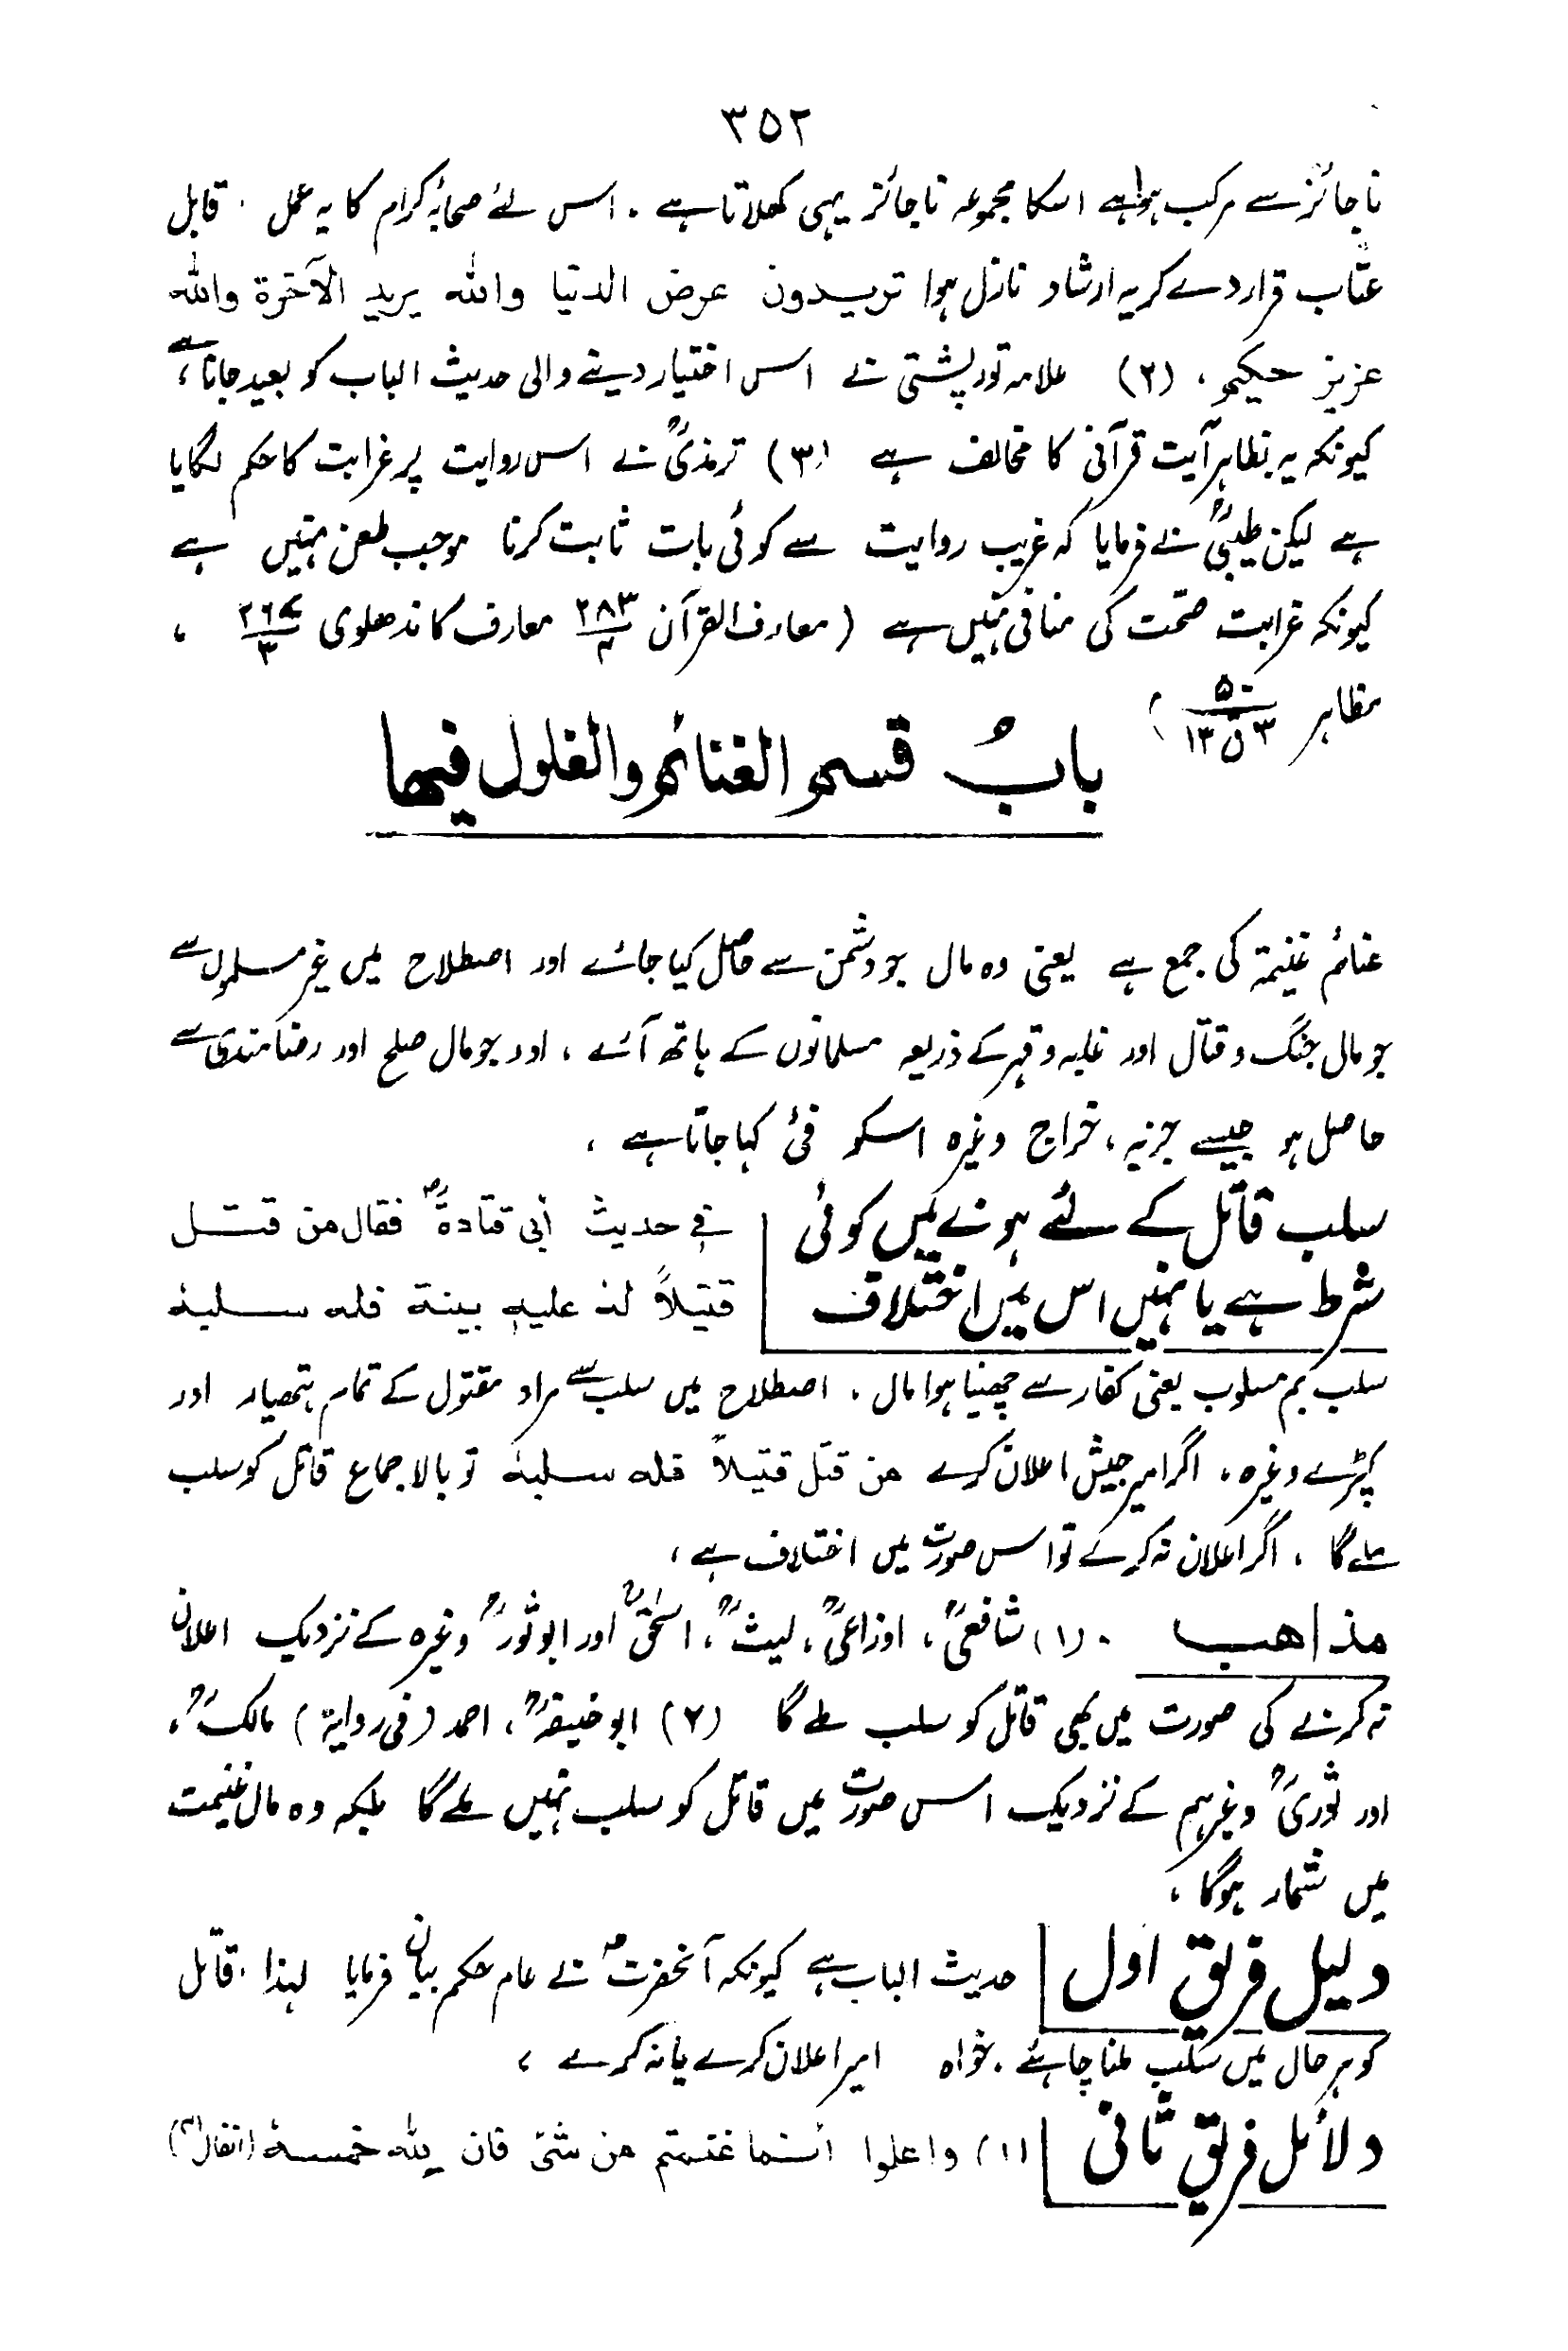 ۳۵۲
ناجائز سے مرکب ہوا ہے اسکا مجموعہ ناجائز یہی کھلاتا ہے ۔ اس لئے صحابۂ کرام کا یہ عمل ۰ قابل
عتاب قرار دے کر یہ ارشاد نازل ہوا تریدون عرض الدنیا واللہ یرید الآخرۃ واللہ
عزیز حکیم ، (۲) علامہ تورپشتی نے اس اختیار دینے والی حدیث الباب کو بعید جانا ہے ،
کیونکہ یہ بظاہر آیت قرآنی کا مخالف ہے (۳) ترمذیؒ نے اس روایت پر غرابت کا حکم لگایا
ہے لیکن طیبیؒ نے فرمایا کہ غریب روایت سے کوئی بات ثابت کرنا موجب طعن نہیں ہے
کیونکہ غرابت صحت کی منافی نہیں ہے (معارف القرآن ۲۸۳/۴ معارف کاندھلوی ۲۶۷/۳ ،
مظاہر )
بابُ قسم الغنائم والغلول فیھا
غنائم غنیمۃ کی جمع ہے یعنی وہ مال جو دشمن سے حاصل کیا جائے اور اصطلاح میں غیر مسلموں سے
جو مال جنگ وقتال اور غلبہ وقہر کے ذریعہ مسلمانوں کے ہاتھ آئے ، اور جو مال صلح اور رضامندی سے
حاصل ہو جیسے جزیہ ، خراج وغیرہ اسکو فئ کہا جاتا ہے ،
سلب قاتل کے لئے ہونے میں کوئی
شرط ہے یا نہیں اس میں اختلاف
فی حدیث أبی قتادۃؓ فقال من قتل
قتیلاً لہ علیہ بینۃ فلہ سلبہ
سلب بم مسلوب یعنی کفار سے چھینا ہوا مال ، اصطلاح میں سلب سے مراد مقتول کے تمام ہتھیار اور
کپڑے وغیرہ ، اگر امیر جیش اعلان کرے من قتل قتیلاً فلہ سلبہ تو بالاجماع قاتل کو سلب
ملے گا ، اگر اعلان نہ کرے تو اس صورت میں اختلاف ہے ،
مذاھب ۔ (۱) شافعیؒ ، اوزاعیؒ ، لیثؒ ، اسحٰقؒ اور ابو ثورؒ وغیرہ کے نزدیک اعلان
نہ کرنے کی صورت میں بھی قاتل کو سلب ملے گا (۲) ابو حنیفہؒ ، احمد (فی روایۃ) مالکؒ ،
اور ثوریؒ وغیرہم کے نزدیک اس صورت میں قاتل کو سلب نہیں ملے گا بلکہ وہ مال غنیمت
میں شمار ہوگا ،
دلیل فریق اول حدیث الباب ہے کیونکہ آنحضرتؐ نے عام حکم بیان فرمایا لہذا ۰ قاتل
کو ہر حال میں سلب ملنا چاہئے ۔ خواہ امیر اعلان کرے یا نہ کرے ،
دلائل فریق ثانی (۱) واعلموا أنما غنمتم من شئ فان للہ خمسہ (انفال)